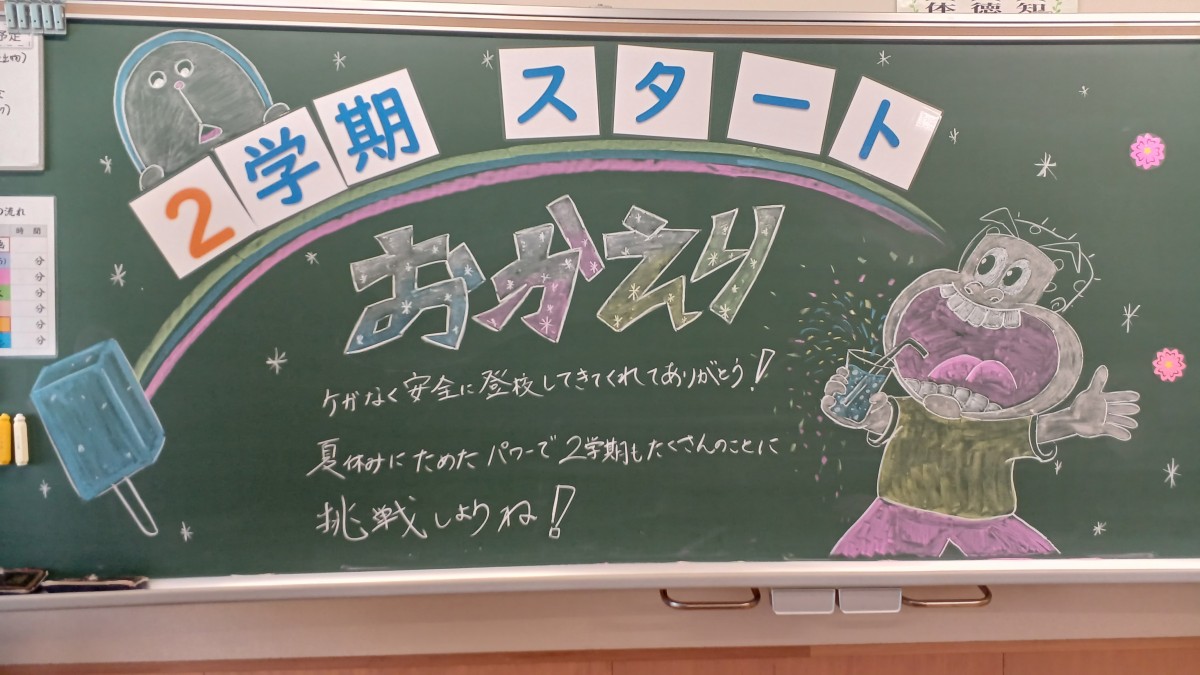 体 徳 知
予定
2学期 スタート
おかえり
ケガなく安全に登校してきてくれてありがとう！
夏休みにためたパワーで2学期もたくさんのことに
挑戦しようね！
の流れ
時 間
分
分
分
分
分
分